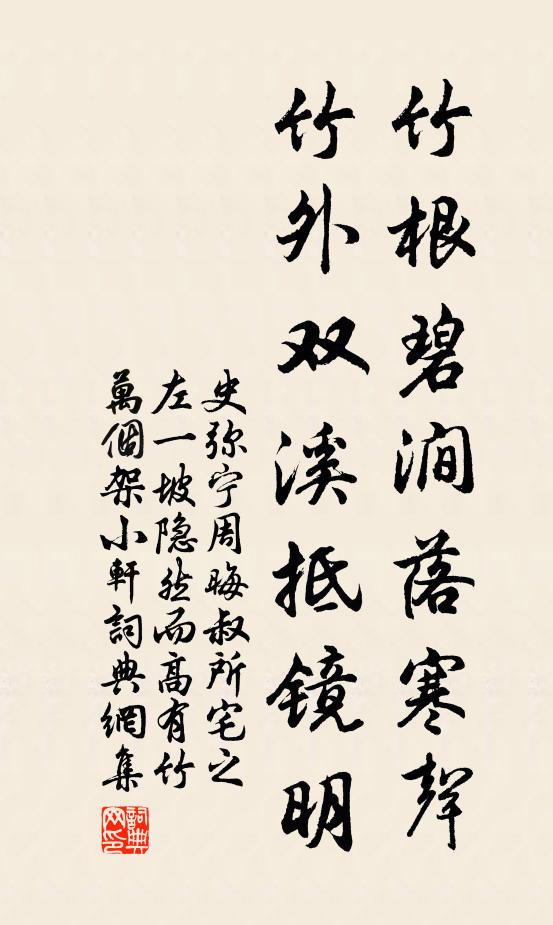 竹根碧澗落寒聲
竹外双溪抵镜明
史弥宁周晦叔所宅之
左一坡隐然而高有竹
萬個架小軒詞典網集
詞典网印